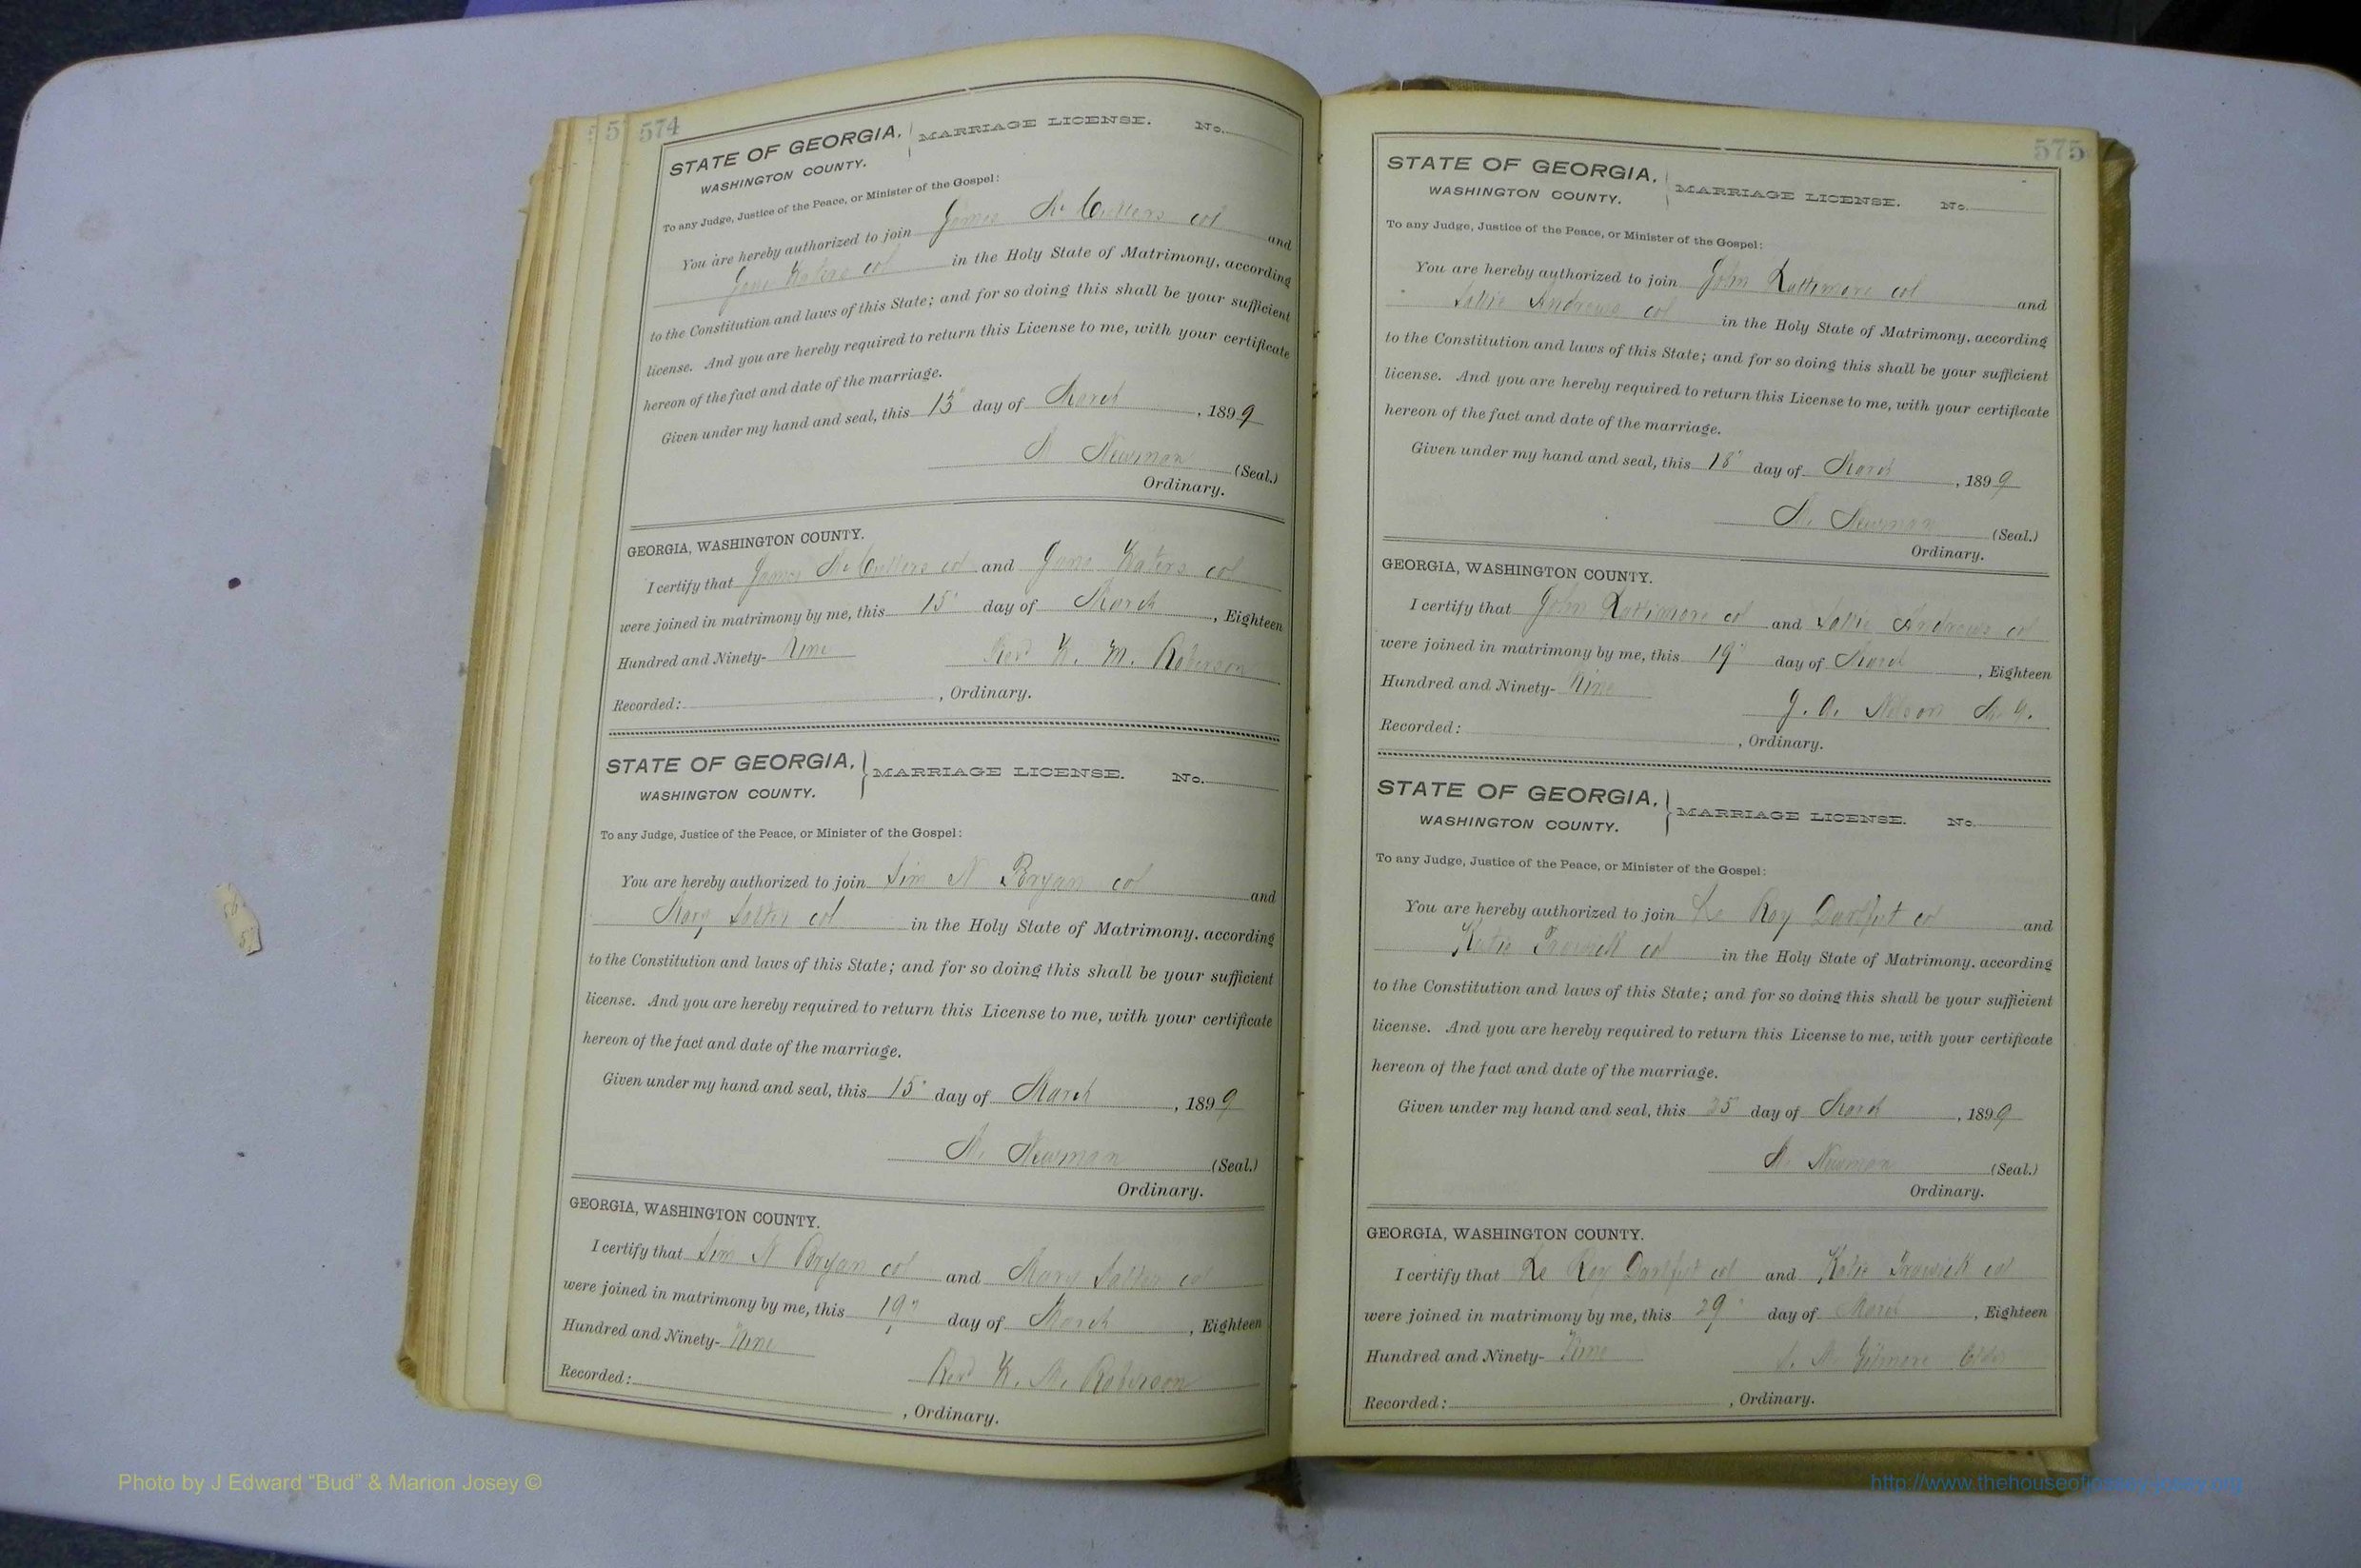 574
STATE OF GEORGIA,
WASHINGTON COUNTY.
MARRIAGE LICENSE. No.
To any Judge, Justice of the Peace, or Minister of the Gospel:
You are hereby authorized to join James McCullers col and
Jane Waters col in the Holy State of Matrimony, according
to the Constitution and laws of this State; and for so doing this shall be your sufficient
license. And you are hereby required to return this License to me, with your certificate
hereon of the fact and date of the marriage.
Given under my hand and seal, this 13" day of March, 1899
M Newman (Seal.)
Ordinary.
GEORGIA, WASHINGTON COUNTY.
I certify that James McCullers col and Jane Waters col
were joined in matrimony by me, this 15" day of March, Eighteen
Hundred and Ninety-Nine Rev W. M. Roberson
Recorded: , Ordinary.
STATE OF GEORGIA,
WASHINGTON COUNTY.
MARRIAGE LICENSE. No.
To any Judge, Justice of the Peace, or Minister of the Gospel:
You are hereby authorized to join Sim N Bryan col and
Mary Salter col in the Holy State of Matrimony, according
to the Constitution and laws of this State; and for so doing this shall be your sufficient
license. And you are hereby required to return this License to me, with your certificate
hereon of the fact and date of the marriage.
Given under my hand and seal, this 15" day of March, 1899
M. Newman (Seal.)
Ordinary.
GEORGIA, WASHINGTON COUNTY.
I certify that Sim N Bryan col and Mary Salter co
were joined in matrimony by me, this 19" day of March, Eighteen
Hundred and Ninety-Nine Rev W. M. Roberson
Recorded: , Ordinary.
575
STATE OF GEORGIA,
WASHINGTON COUNTY.
MARRIAGE LICENSE. No.
To any Judge, Justice of the Peace, or Minister of the Gospel:
You are hereby authorized to join John Lattimore col and
Sallie Andrews col in the Holy State of Matrimony, according
to the Constitution and laws of this State; and for so doing this shall be your sufficient
license. And you are hereby required to return this License to me, with your certificate
hereon of the fact and date of the marriage.
Given under my hand and seal, this 18" day of March, 1899
M. Newman (Seal.)
Ordinary.
GEORGIA, WASHINGTON COUNTY.
I certify that John Lattimore col and Sallie Andrews col
were joined in matrimony by me, this 19" day of March, Eighteen
Hundred and Ninety-Nine J. A. Nelson M. G.
Recorded: , Ordinary.
STATE OF GEORGIA,
WASHINGTON COUNTY.
MARRIAGE LICENSE. No.
To any Judge, Justice of the Peace, or Minister of the Gospel:
You are hereby authorized to join Le Roy col and
Katie Trawick col in the Holy State of Matrimony, according
to the Constitution and laws of this State; and for so doing this shall be your sufficient
license. And you are hereby required to return this License to me, with your certificate
hereon of the fact and date of the marriage.
Given under my hand and seal, this 25 day of March, 1899
M. Newman (Seal.)
Ordinary.
GEORGIA, WASHINGTON COUNTY.
I certify that Le Roy col and Katie Trawick col
were joined in matrimony by me, this 29" day of March, Eighteen
Hundred and Ninety-Nine Gilmore Elder
Recorded: , Ordinary.
Photo by J Edward “Bud” & Marion Josey ©